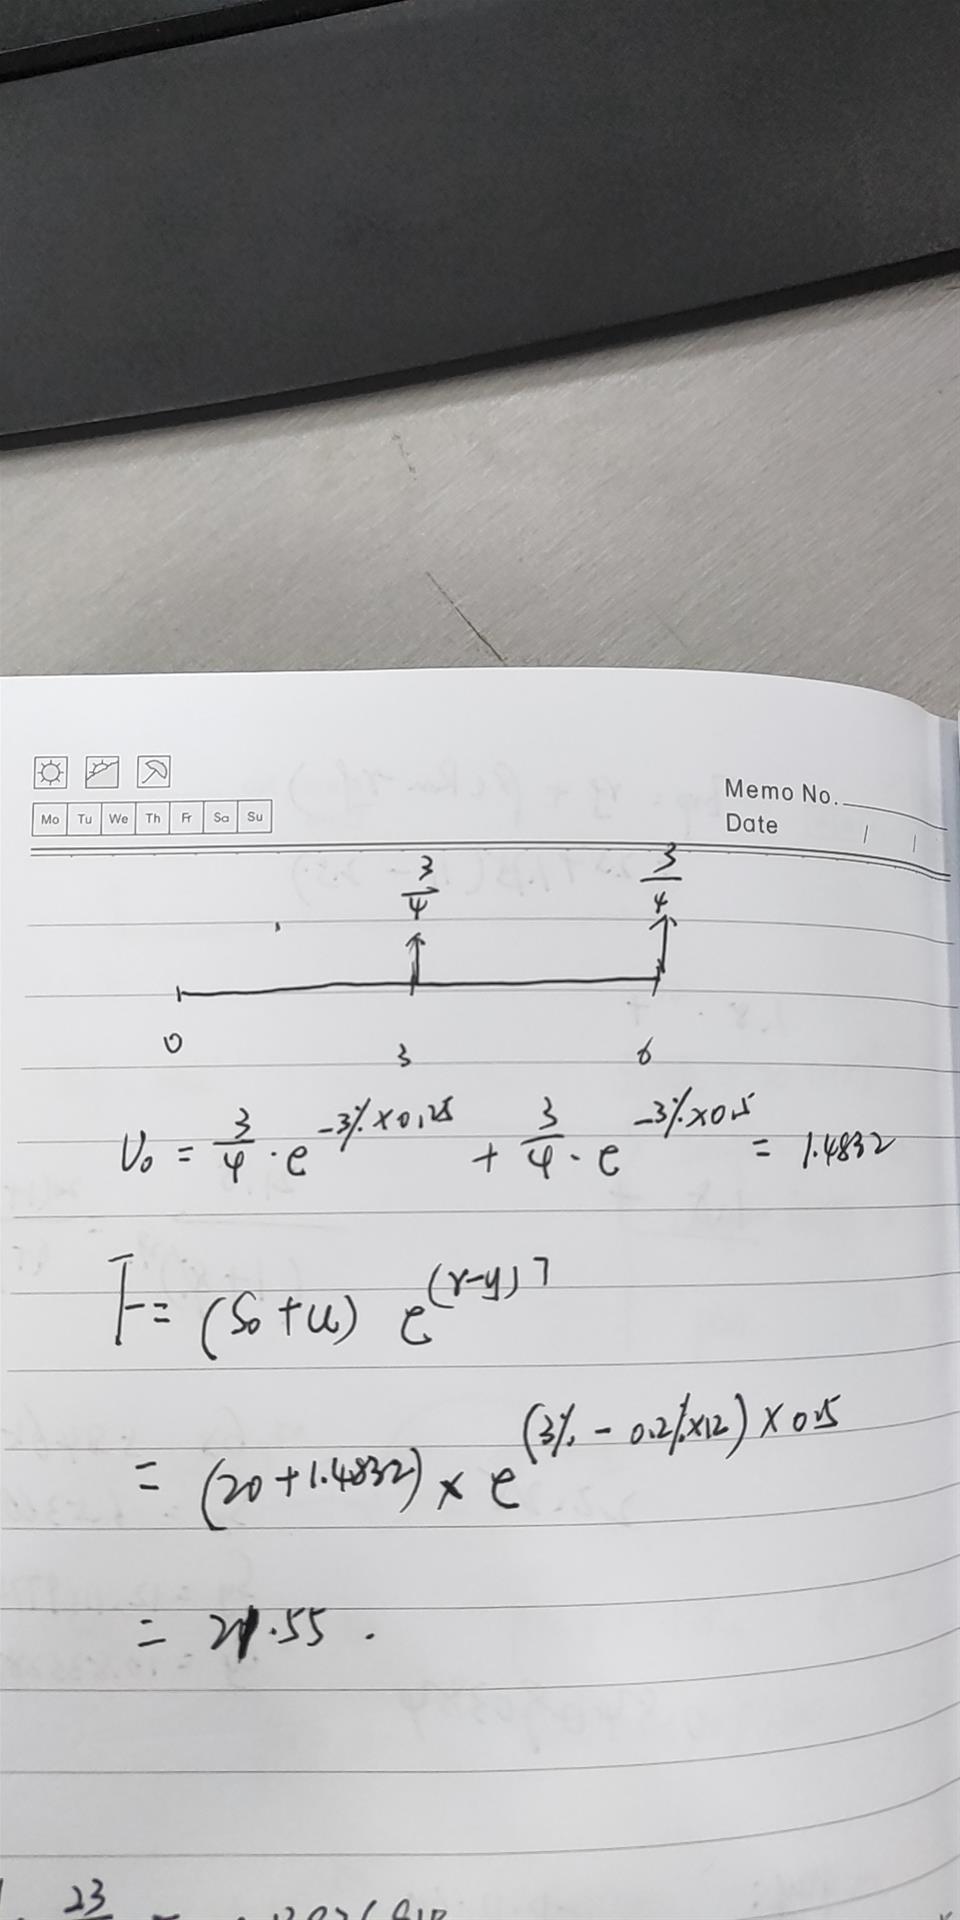 Memo No.
Mo Tu We Th Fr Sa Su
Date / /
3/4 3/4
0 3 6
U₀ = 3/4 · e^(-3%×0.25) + 3/4 · e^(-3%×0.5) = 1.4832
F = (S₀+u) e^((r-y)T)
= (20+1.4832) × e^((3% - 0.2%×12)×0.5)
= 21.55 .
23